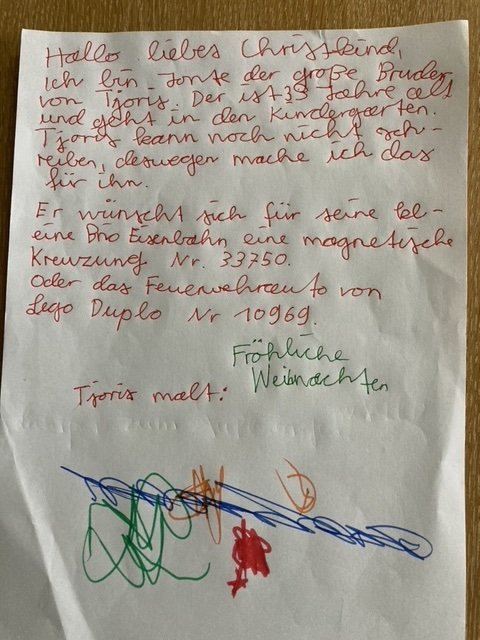 Hallo liebes Christkind,
ich bin Jonte der große Bruder
von Tjoris. Der ist 3 Jahre alt
und geht in den Kindergarten.
Tjoris kann noch nicht sch-
reiben, deswegen mache ich das
für ihn.
Er wünscht sich für seine kl-
eine Brio Eisenbahn eine magnetische
Kreuzung Nr. 33750.
Oder das Feuerwehrauto von
Lego Duplo Nr 10969.
Fröhliche
Weihnachten
Tjoris malt: